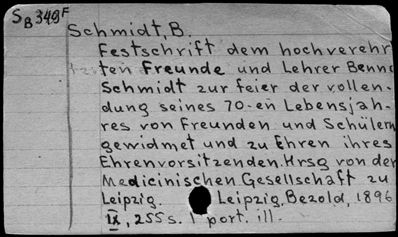 SB349F
Schmidt, B.
Festschrift dem hochverehr
ten Freunde und Lehrer Benno
Schmidt zur feier der vollen-
dung seines 70-en Lebensjah-
res von Freunden und Schülern
gewidmet und zu Ehren ihres
Ehrenvorsitzenden. Hrsg von der
Medicinischen Gesellschaft zu
Leipzig. Leipzig, Bezold, 1896
IX, 255 s. 1 port. ill.